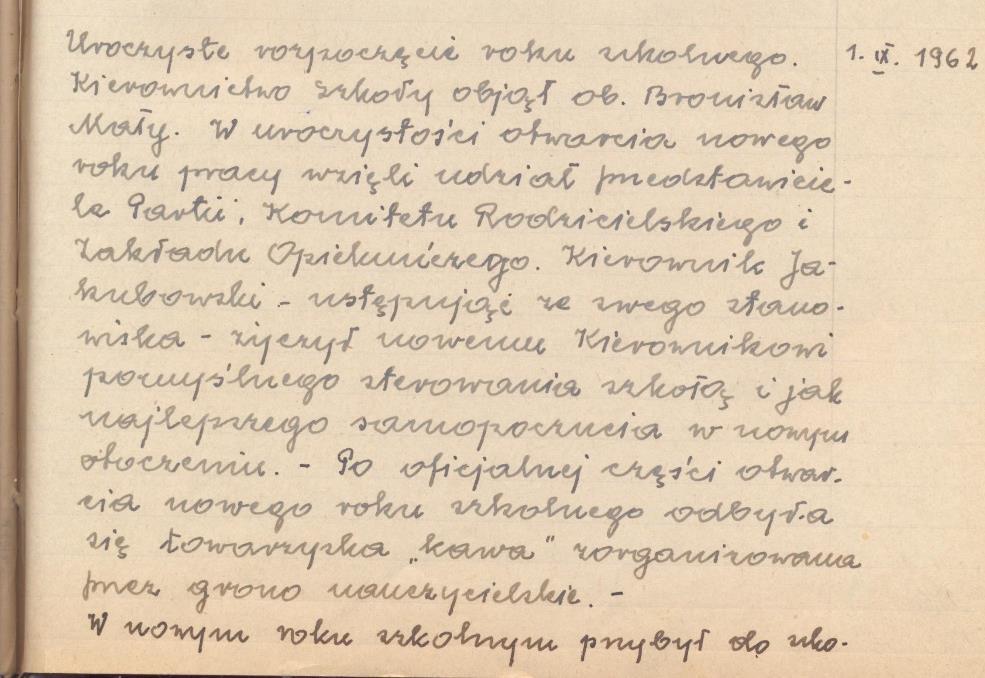 Uroczyste rozpoczęcie roku szkolnego. 1. IX. 1962
Kierownictwo Szkoły objął ob. Bronisław
Mały. W uroczystości otwarcia nowego
roku pracy wzięli udział przedstawicie-
le Partii, Komitetu Rodzicielskiego i
Zakładu Opiekuńczego. Kierownik Ja-
kubowski - ustępując ze swego stano-
wiska - życzył nowemu Kierownikowi
pomyślnego sterowania szkołą i jak
najlepszego samopoczucia w nowym
otoczeniu. - Po oficjalnej części otwar-
cia nowego roku szkolnego odbyła
się towarzyska „kawa" zorganizowana
przez grono nauczycielskie. -
W nowym roku szkolnym przybył do szko-